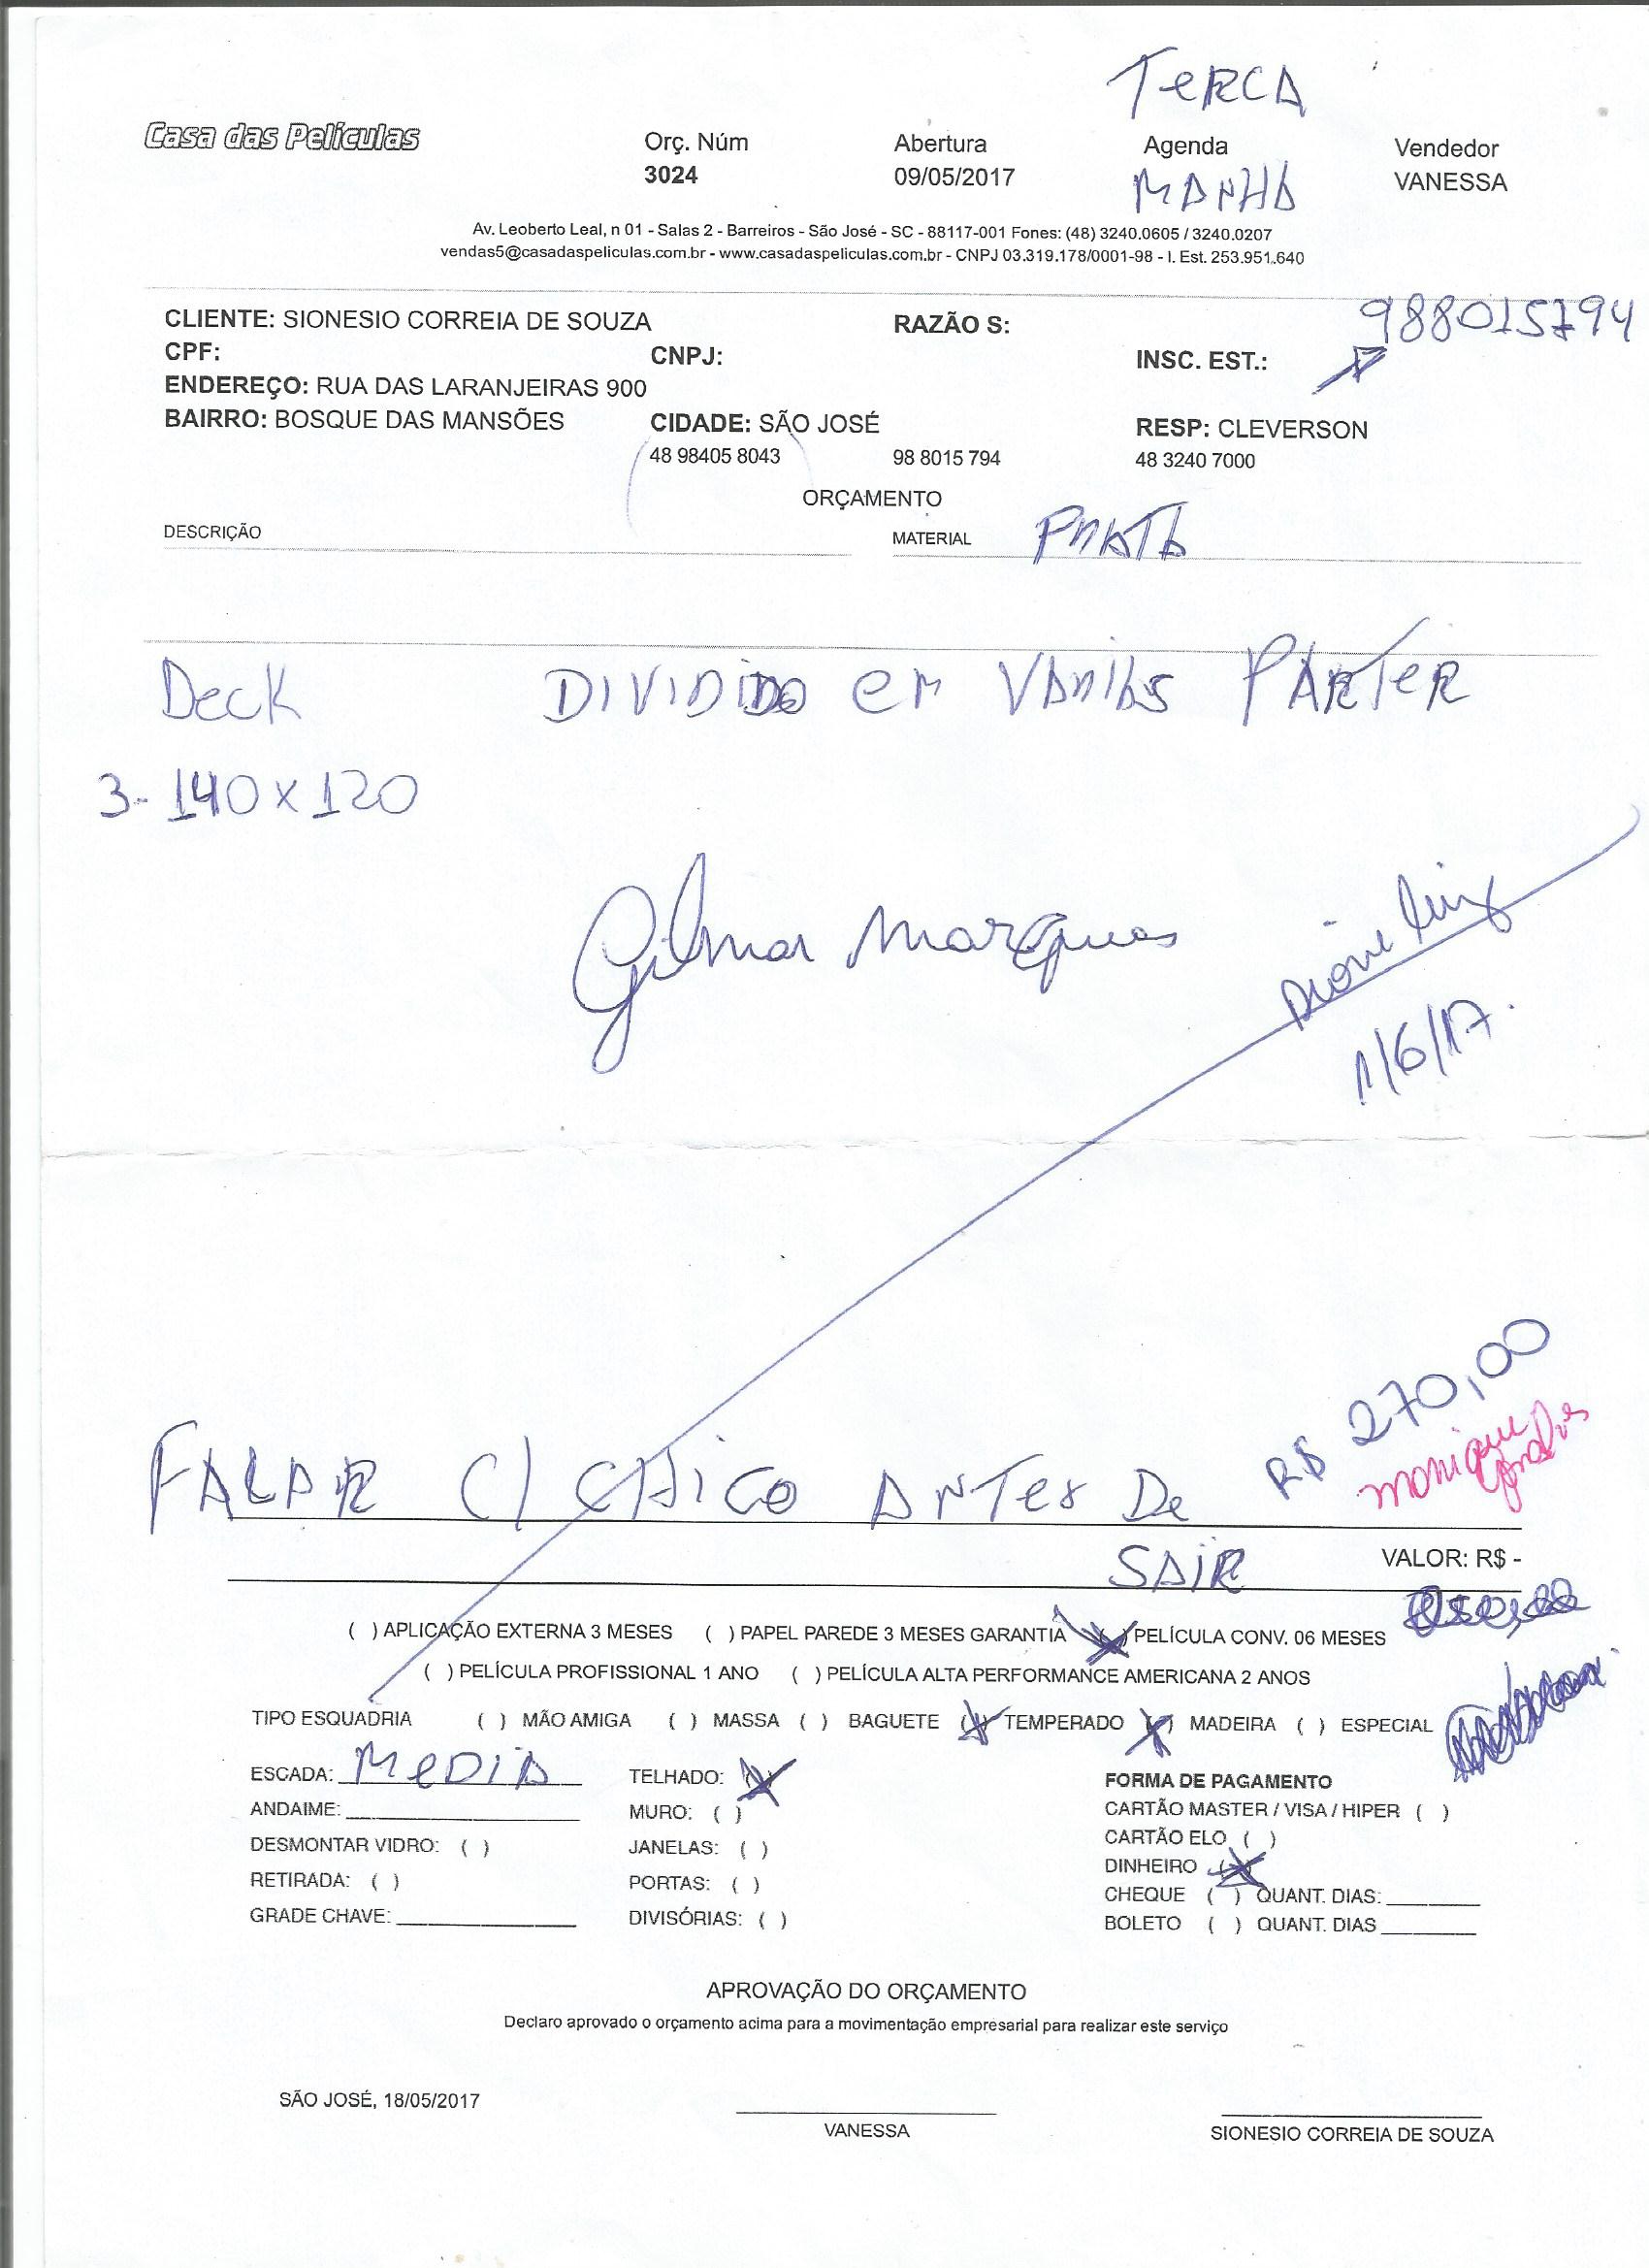 TERCA
Casa das Películas
Orç. Núm Abertura Agenda Vendedor
3024 09/05/2017 MANHA VANESSA
Av. Leoberto Leal, n 01 - Salas 2 - Barreiros - São José - SC - 88117-001 Fones: (48) 3240.0605 / 3240.0207
vendas5@casadaspeliculas.com.br - www.casadaspeliculas.com.br - CNPJ 03.319.178/0001-98 - I. Est. 253.951.640
988015794
CLIENTE: SIONESIO CORREIA DE SOUZA RAZÃO S:
CPF: CNPJ: INSC. EST.:
ENDEREÇO: RUA DAS LARANJEIRAS 900
BAIRRO: BOSQUE DAS MANSÕES CIDADE: SÃO JOSÉ RESP: CLEVERSON
48 98405 8043 98 8015 794 48 3240 7000
ORÇAMENTO
DESCRIÇÃO MATERIAL PRATA
Deck DIVIDIDO em VARIAS PARTER
3- 140 x 120
Gilmar Marques
1/6/17.
R$ 270,00
monique
FALAR C/ CHICO ANTES De
SAIR VALOR: R$ -
( ) APLICAÇÃO EXTERNA 3 MESES ( ) PAPEL PAREDE 3 MESES GARANTIA ( ) PELÍCULA CONV. 06 MESES
( ) PELÍCULA PROFISSIONAL 1 ANO ( ) PELÍCULA ALTA PERFORMANCE AMERICANA 2 ANOS
TIPO ESQUADRIA ( ) MÃO AMIGA ( ) MASSA ( ) BAGUETE (X) TEMPERADO (X) MADEIRA ( ) ESPECIAL
ESCADA: MeDIA TELHADO: (X) FORMA DE PAGAMENTO
ANDAIME: MURO: ( ) CARTÃO MASTER / VISA / HIPER ( )
DESMONTAR VIDRO: ( ) JANELAS: ( ) CARTÃO ELO ( )
RETIRADA: ( ) PORTAS: ( ) DINHEIRO (X)
GRADE CHAVE: DIVISÓRIAS: ( ) CHEQUE ( ) QUANT. DIAS:
BOLETO ( ) QUANT. DIAS
APROVAÇÃO DO ORÇAMENTO
Declaro aprovado o orçamento acima para a movimentação empresarial para realizar este serviço
SÃO JOSÉ, 18/05/2017
VANESSA SIONESIO CORREIA DE SOUZA